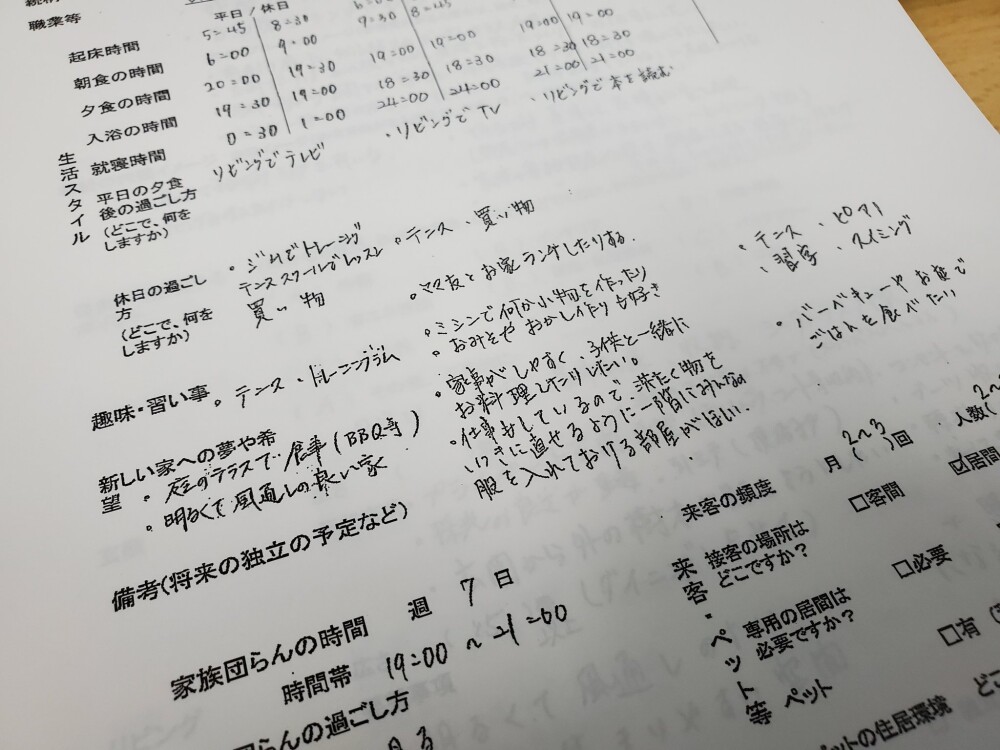 職業等
平日/休日
起床時間 5=45 8=30 9=30 8=45
朝食の時間 6=00 9=00
夕食の時間 20=00 19=30 19=00 19=00 19=00 19=00
入浴の時間 19=30 19=00 18=30 18=30 18=30 18=30
就寝時間 0=30 1=00 24=00 24=00 21=00 21=00
生活スタイル
平日の夕食後の過ごし方
(どこで、何をしますか)
リビングでテレビ
・リビングでTV
・リビングで本を読む
休日の過ごし方
(どこで、何をしますか)
・ジムでトレーニング
テニススクールでレッスン
買い物
・テニス ・買い物
。ママ友とお家ランチしたりする。
趣味・習い事
。テニス ・トレーニングジム
。ミシンで何か小物を作ったり
。おみそやおかし作りも好き
・テニス ・ピアノ
・習字 ・スイミング
新しい家への夢や希望
。庭のテラスで食事(BBQ等)
。明るくて風通しの良い家
・家事がしやすく、子供と一緒に
お料理したりしたい。
・仕事をしているので、洗たく物を
いっきに直せるように一階にみんなの
服を入れておける部屋がほしい。
・バーベキューやお庭で
ごはんを食べたり
備考(将来の独立の予定など)
家族団らんの時間 週 7 日
時間帯 19=00 ~ 21=00
らんの過ごし方
来客・ペット等
来客の頻度 月(2~3)回
人数(
接客の場所はどこですか?
□客間 ☑居間
専用の居間は必要ですか?
□必要
ペット □有(
ットの住居環境